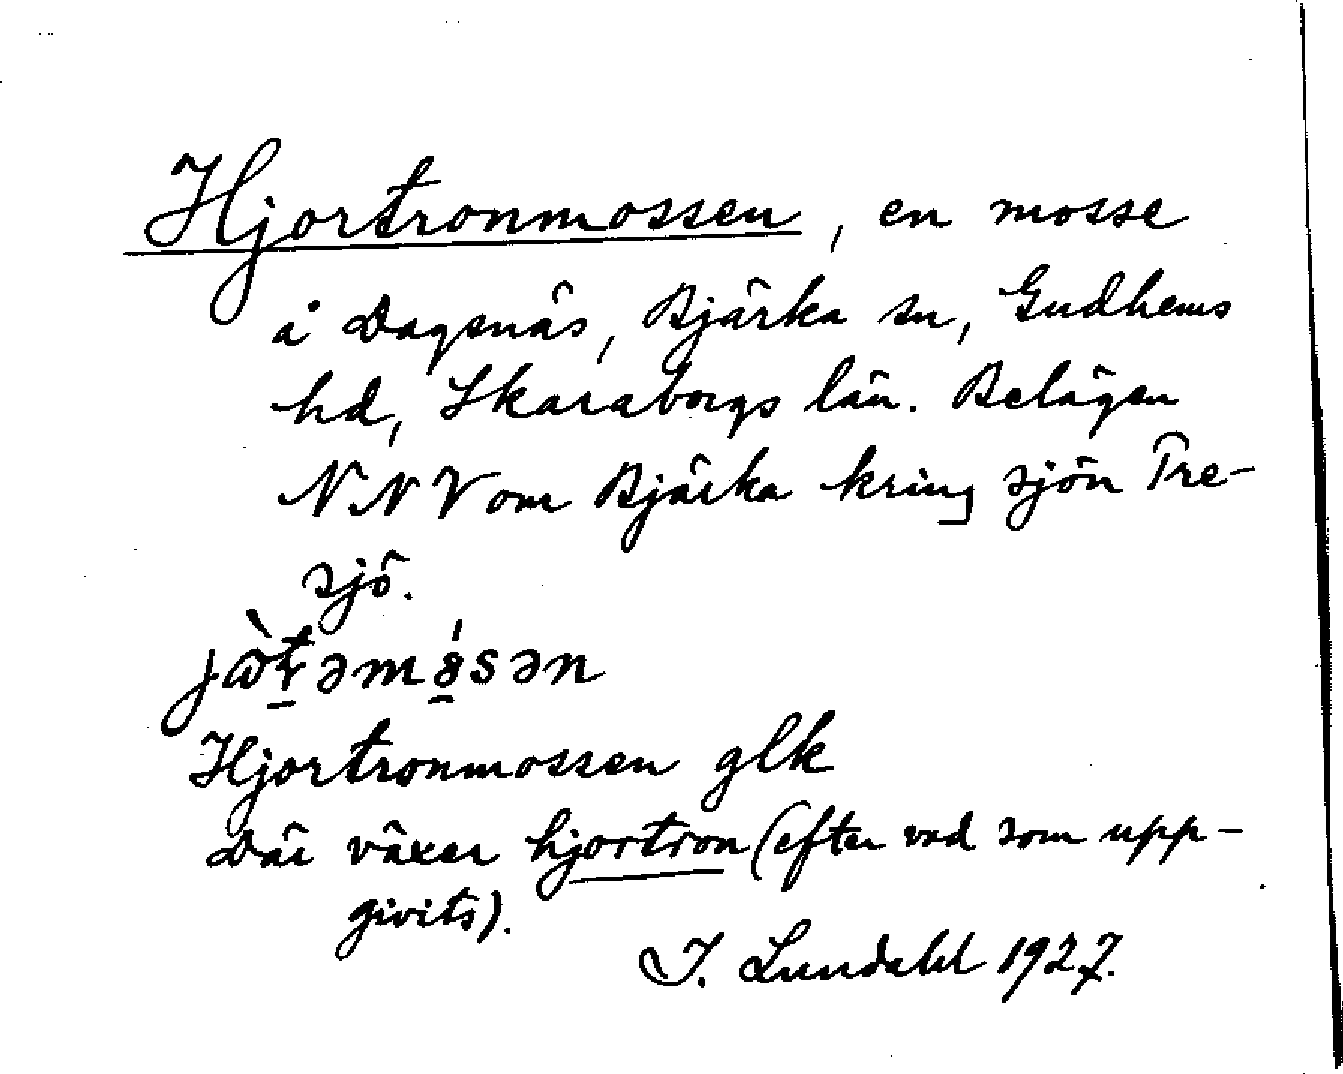 Hjortronmossen, en mosse
å Dagsnäs, Bjärka sn, Gudhems
hd, Skaraborgs län. Belägen
NNV om Bjärka kring sjön Tre-
sjö.
Hjortronmossen glk
Där växer hjortron (efter vad som upp-
givits).
I. Lundahl 1927.